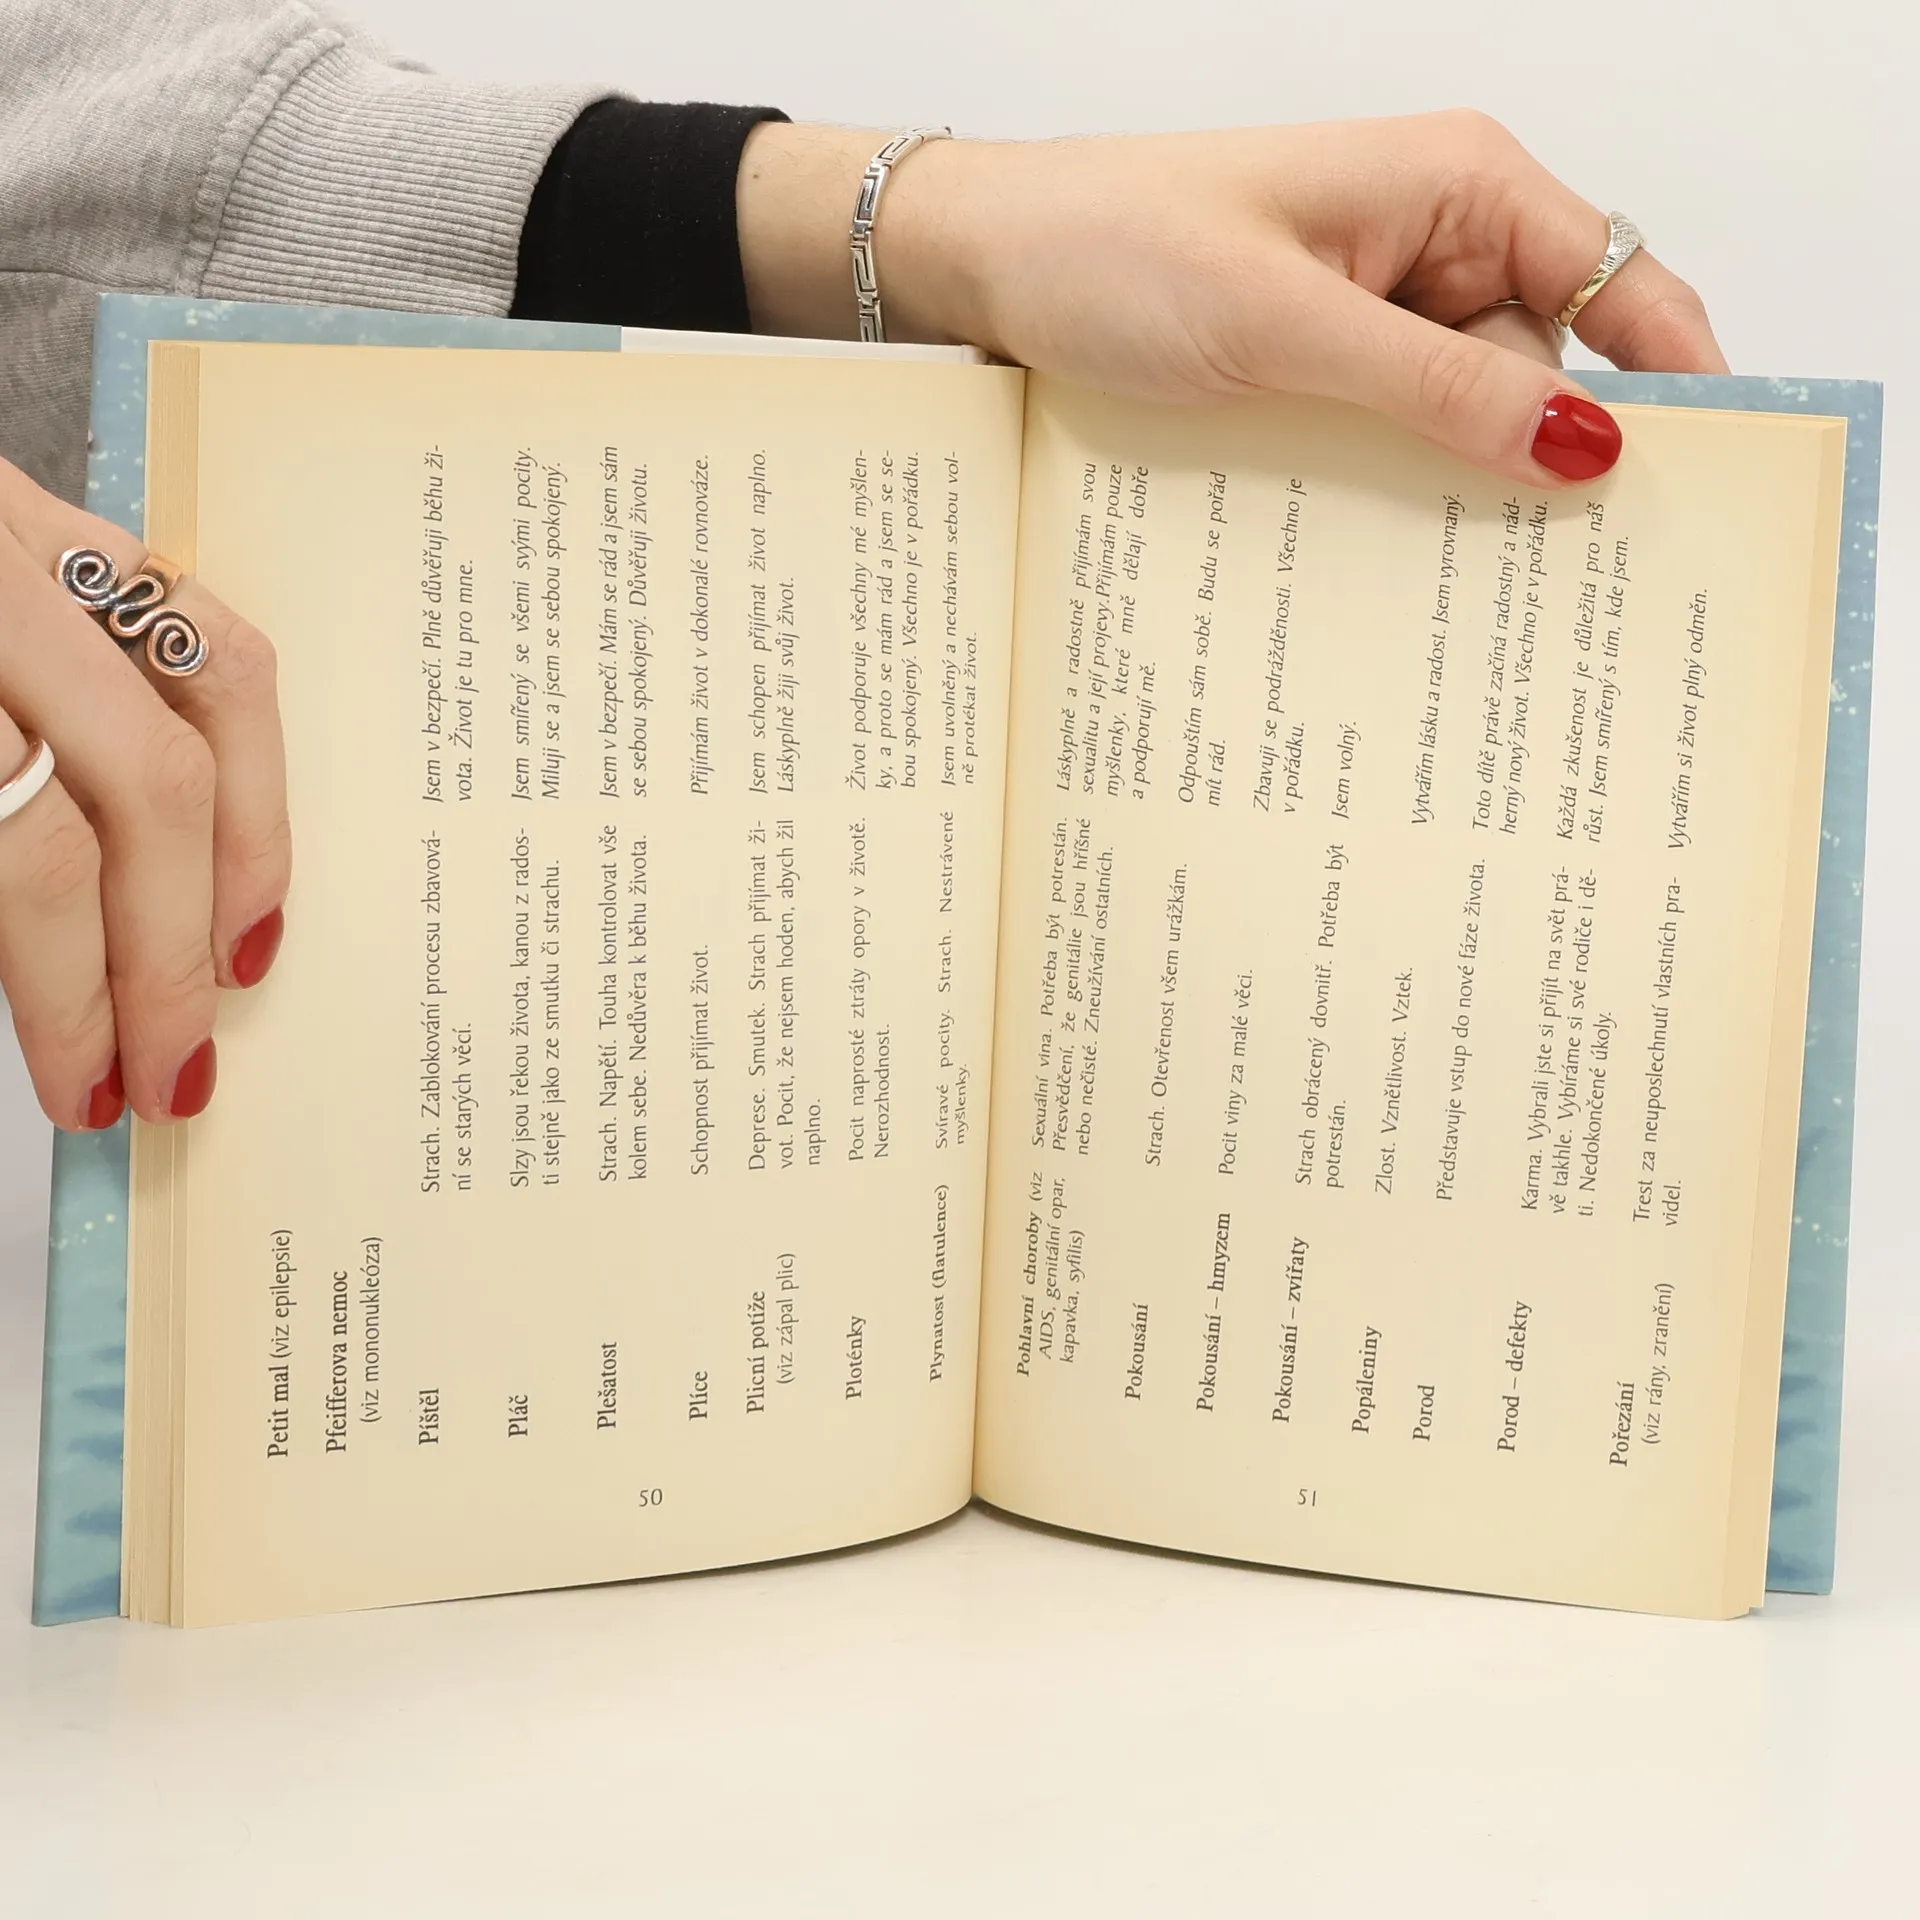 Petit mal (viz epilepsie)
Pfeifferova nemoc
(viz mononukleóza)
Píštěl
Strach. Zablokování procesu zbavová-
ní se starých věcí.
Jsem v bezpečí. Plně důvěřuji běhu ži-
vota. Život je tu pro mne.
Pláč
Slzy jsou řekou života, kanou z rados-
ti stejně jako ze smutku či strachu.
Jsem smířený se všemi svými pocity.
Miluji se a jsem se sebou spokojený.
Plešatost
Strach. Napětí. Touha kontrolovat vše
kolem sebe. Nedůvěra k běhu života.
Jsem v bezpečí. Mám se rád a jsem sám
se sebou spokojený. Důvěřuji životu.
Plíce
Schopnost přijímat život.
Přijímám život v dokonalé rovnováze.
Plicní potíže
(viz zápal plic)
Deprese. Smutek. Strach přijímat ži-
vot. Pocit, že nejsem hoden, abych žil
naplno.
Jsem schopen přijímat život naplno.
Láskyplně žiji svůj život.
Ploténky
Pocit naprosté ztráty opory v životě.
Nerozhodnost.
Život podporuje všechny mé myšlen-
ky, a proto se mám rád a jsem se se-
bou spokojený. Všechno je v pořádku.
Plynatost (flatulence)
Svíravé pocity. Strach. Nestrávené
myšlenky.
Jsem uvolněný a nechávám sebou vol-
ně protékat život.
50
Pohlavní choroby (viz
AIDS, genitální opar,
kapavka, syfilis)
Sexuální vina. Potřeba být potrestán.
Přesvědčení, že genitálie jsou hříšné
nebo nečisté. Zneužívání ostatních.
Láskyplně a radostně přijímám svou
sexualitu a její projevy.Přijímám pouze
myšlenky, které mně dělají dobře
a podporují mě.
Pokousání
Strach. Otevřenost všem urážkám.
Odpouštím sám sobě. Budu se pořád
mít rád.
Pokousání – hmyzem
Pocit viny za malé věci.
Zbavuji se podrážděnosti. Všechno je
v pořádku.
Pokousání – zvířaty
Strach obrácený dovnitř. Potřeba být
potrestán.
Jsem volný.
Popáleniny
Zlost. Vznětlivost. Vztek.
Vytvářím lásku a radost. Jsem vyrovnaný.
Porod
Představuje vstup do nové fáze života.
Toto dítě právě začíná radostný a nád-
herný nový život. Všechno je v pořádku.
Porod – defekty
Karma. Vybrali jste si přijít na svět prá-
vě takhle. Vybíráme si své rodiče i dě-
ti. Nedokončené úkoly.
Každá zkušenost je důležitá pro náš
růst. Jsem smířený s tím, kde jsem.
Pořezání
(viz rány, zranění)
Trest za neuposlechnutí vlastních pra-
videl.
Vytvářím si život plný odměn.
51